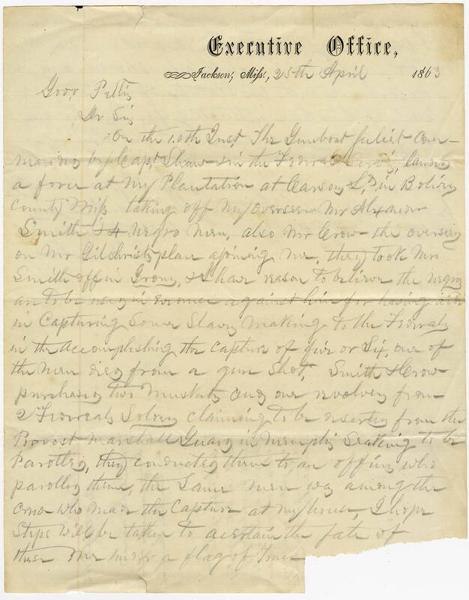 Executive Office,
Jackson, Miss, 25th April 1863
Gov Pettus
Dr Sir
On the 10th Inst The Gunboat Juliet Com-
manded by Capt Shaw in the Federal landed
a force at my Plantation at in Bolivar
County Miss taking off my overseer Mr
Smith & 4 Negro men, also Mr Crow the overseer
on Mr Gilchrists place ajoining me, they took Mr
Smith off in Irons, & I have reason to believe the negros
are to be used in evidence against him for having aided
in Capturing some Slaves making to the Federals
in the accomplishing the capture of five or Six, one of
the men died from a gun Shot, Smith & Crow
purchased two Muskets and one revolver from
2 Federal Soldiers claiming to be deserters from the
Provost Marshall Guard in Memphis Seaking to be
Parolled, they conducted them to an officer who
parolled them, the Same men was among the
ones who made the Capture at my house, I hope
Steps will be taken to ascertain the fate of
these men a flag of Truce